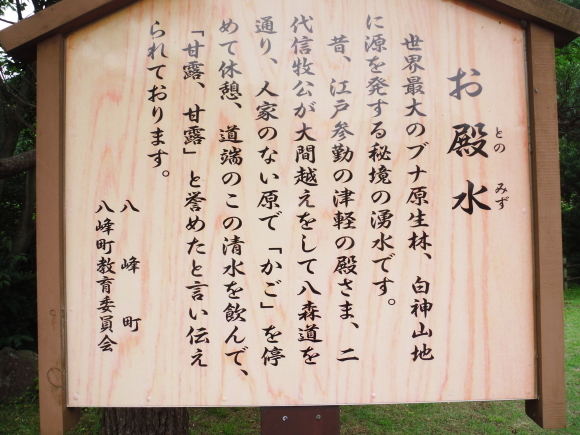 お殿水
との みず
世界最大のブナ原生林、白神山地
に源を発する秘境の湧水です。
昔、江戸参勤の津軽の殿さま、二
代信牧公が大間越えをして八森道を
通り、人家のない原で「かご」を停
めて休憩、道端のこの清水を飲んで、
「甘露、甘露」と誉めたと言い伝え
られております。
八峰町
八峰町教育委員会